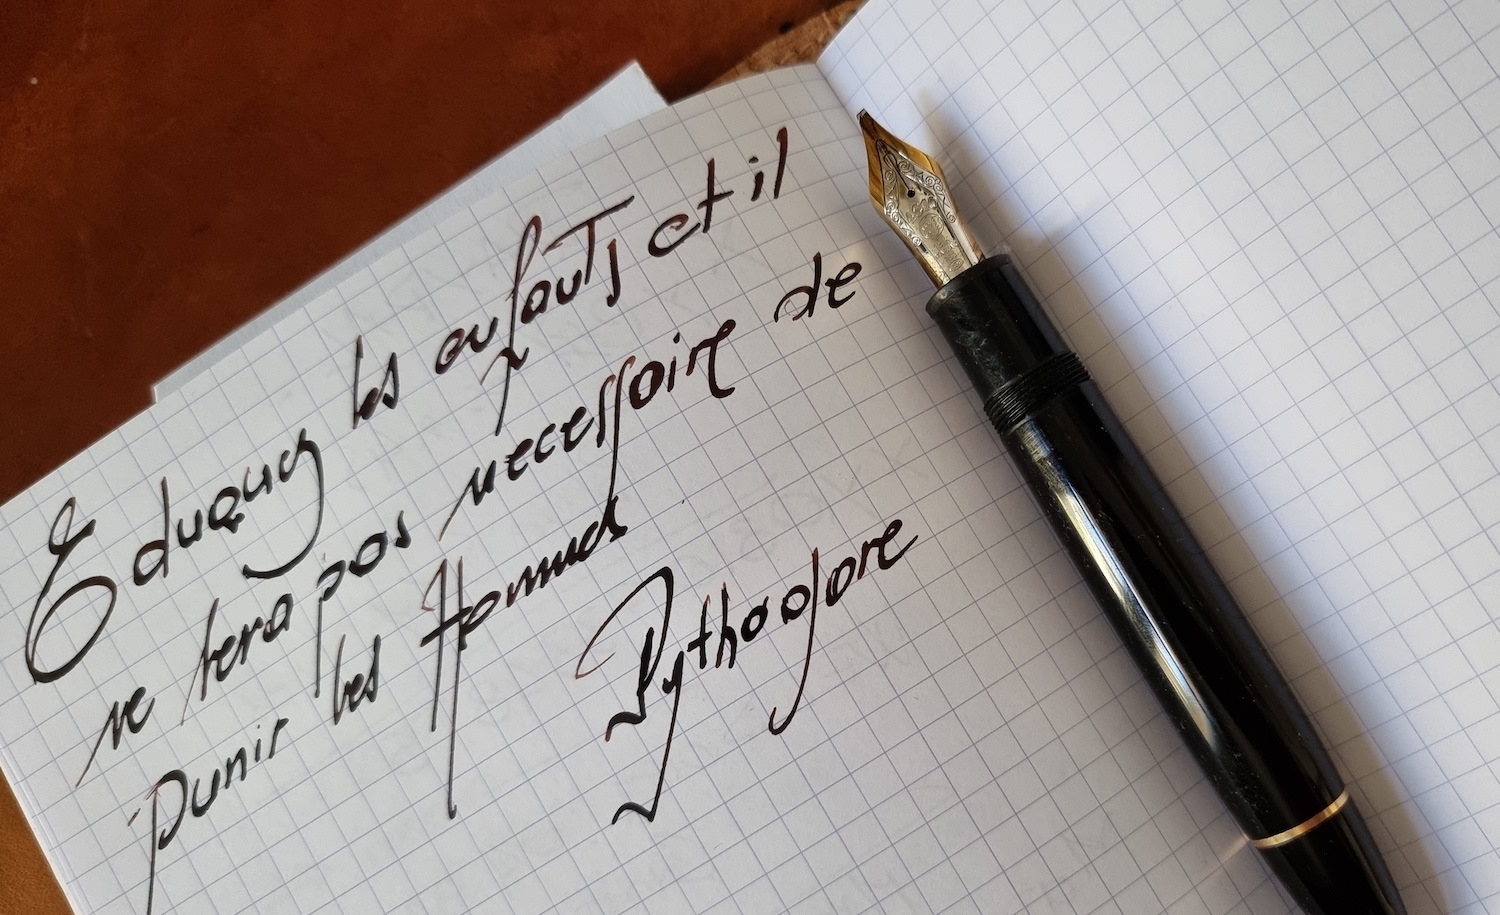 Eduquez les enfants et il
ne sera pas necessaire de
punir les Hommes
Pythagore